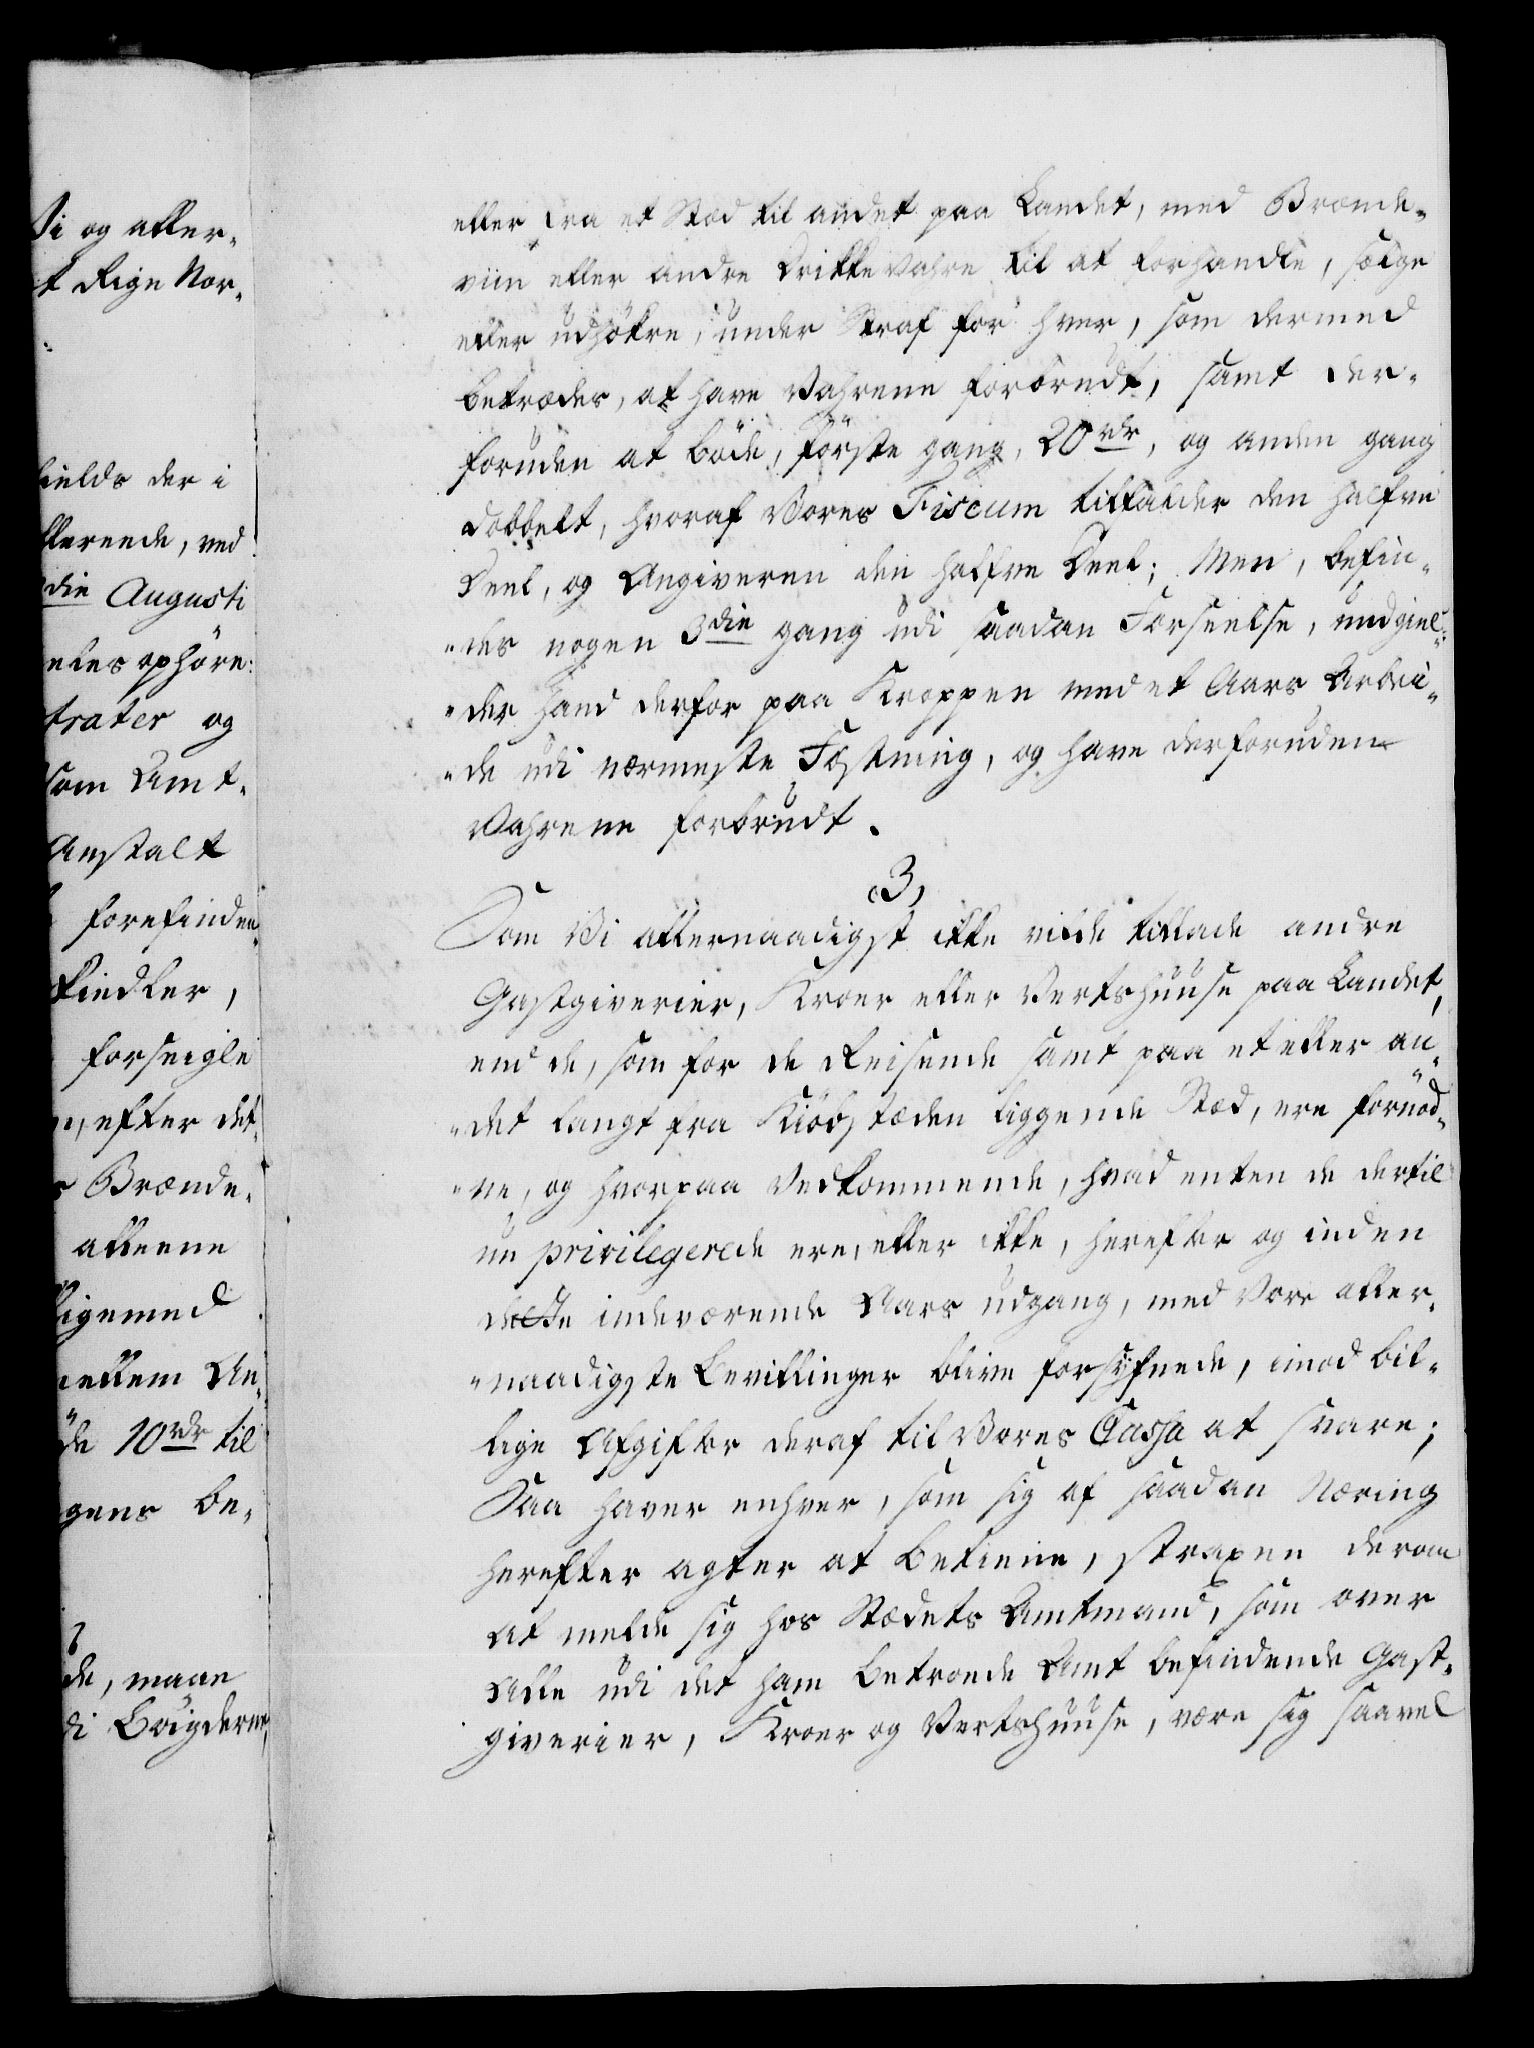 Vi og aller-
t Rige Nor-
fields der i
llerende, ved
die Augusti
eles ophöre:
trater og
som Amt-
Anstalt
forefinden-
Kiedler,
forseigle
efter det-
Brænde-
alleene
ligemed
ellem An-
de 10 rdr til
gens be-
de, maae
di Böigderne,
eller fra et Stæd til andet paa Landet, med Brænde-
viin eller andre Drikkevahre til at forhandle, sælge
eller udhökre, under Straf for hver, som dermed
betrædes, at have Vahrene forbrudt, samt der-
foruden at böde, förste gang, 20 rdr, og anden gang
dobbelt, hvoraf Vores Fiscum tilfalder den halfve
Deel, og Angiveren den halfve Deel; Men, befin-
-des nogen 3die gang udi saadan Forseelse, undgiel-
-der hand derfor paa Kroppen med et Aars Arbei-
-de udi nærmeste Fæstning, og have derforuden
Vahrene forbrudt.
3,
Som Vi allernaadigst ikke vilde tillade andre
Gastgiverier, Kroer eller Vertshuuse paa Landet,
end de, som for de Reisende samt paa et eller an-
-det langt fra Kiöbstæden liggende Stæd, ere fornöd-
-ne, og hvorpaa Vedkommende, hvad enten de dertil
nu privilegerede ere, eller ikke, herefter og inden
dette indeværende Aars udgang, med Vore aller-
-naadigste Bevillinger blive forsÿfnede, imod bil-
lige Afgifter deraf til Vores Cassa at svare;
Saa haver enhver, som sig af saadan Næring
herefter agter at betiene, straxen derom
at melde sig hos Stædets Amtmand, som over
Alle udi det ham betroede Amt befindende Gast-
giverier, Kroer og Vertshuuse, være sig saavel